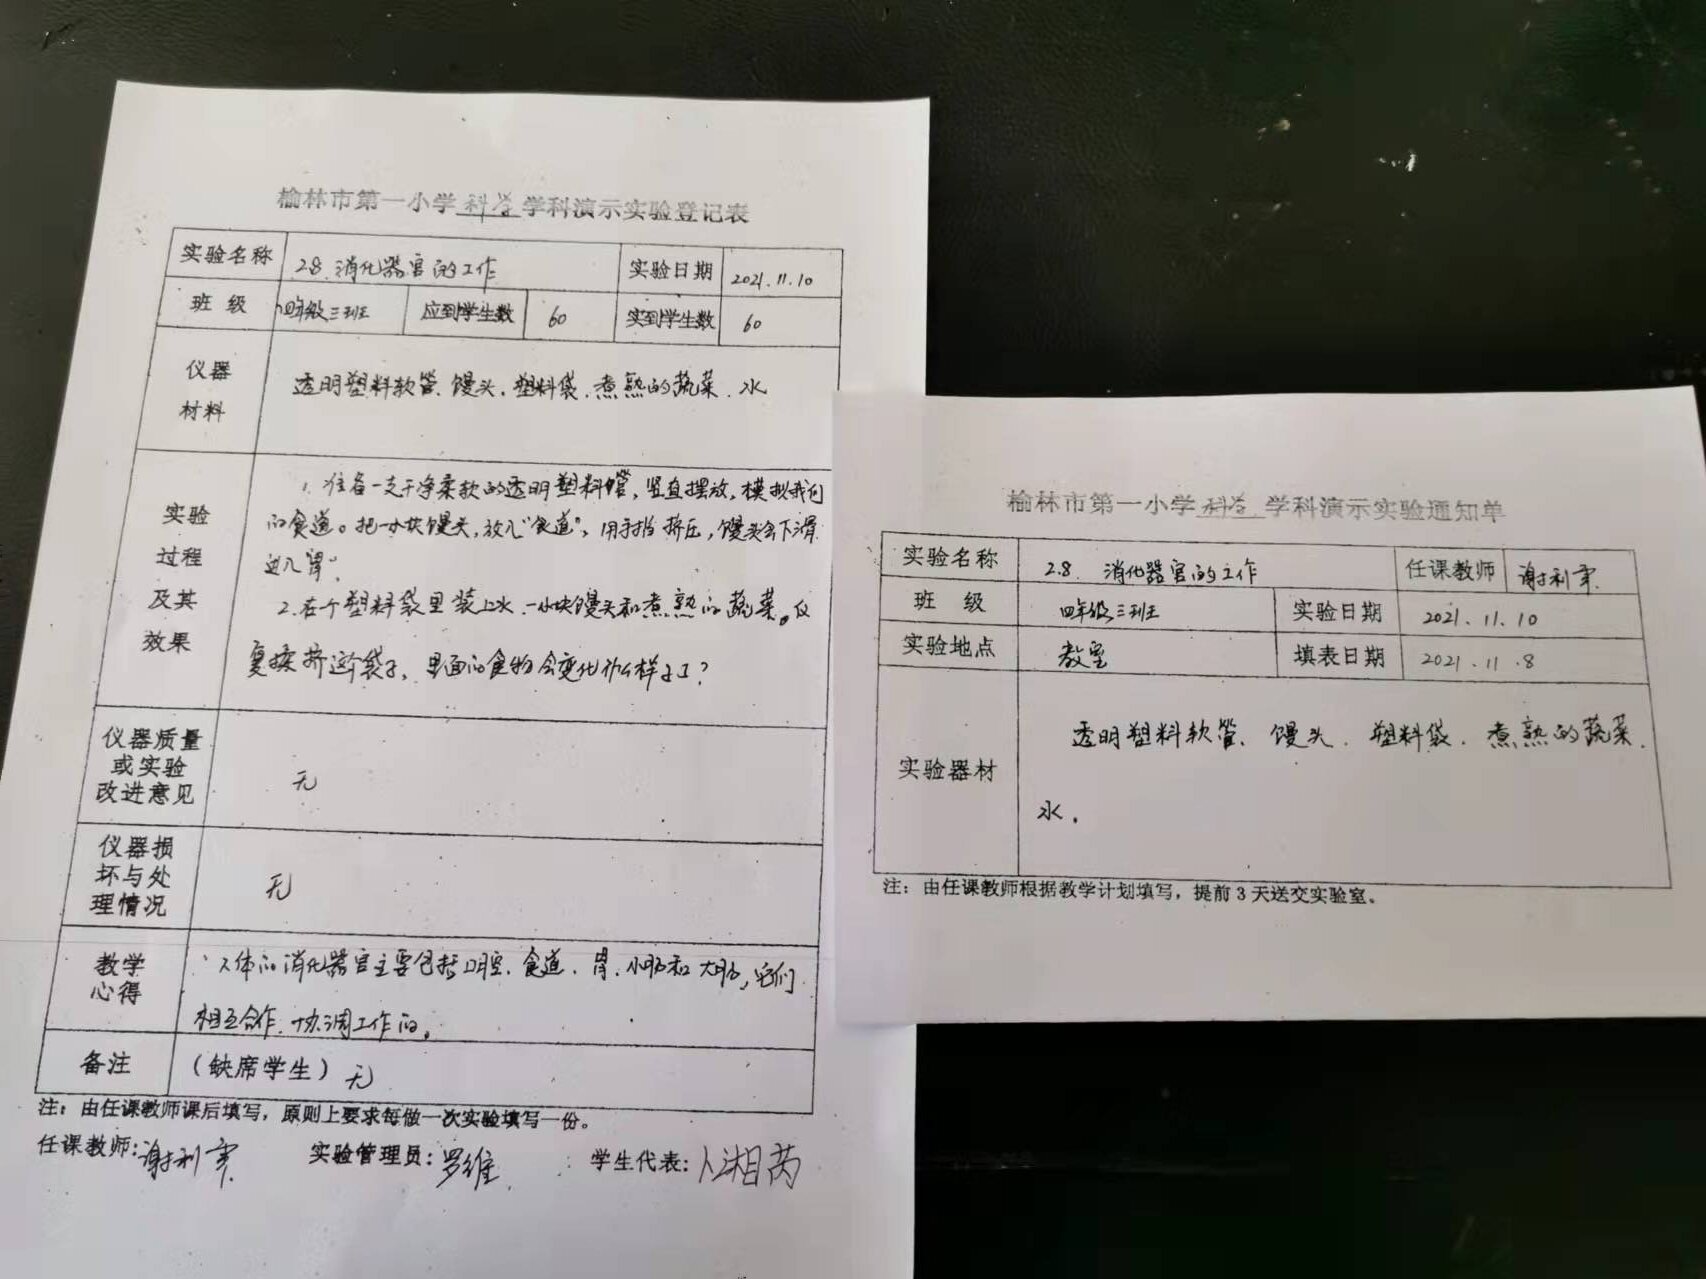 榆林市第一小学科学学科演示实验登记表
实验名称 2.8 消化器官的工作 实验日期 2021.11.10
班 级 四年级三班 应到学生数 60 实到学生数 60
仪器
材料
透明塑料软管、馒头、塑料袋、煮熟的蔬菜、水
实验
过程
及其
效果
1. 准备一支干净柔软的透明塑料管,竖直摆放,模拟我们
的食道。把一小块馒头,放入“食道”,用手挤压,馒头会下滑
进入胃。
2. 在个塑料袋里装上水、一小块馒头和煮熟的蔬菜。反
复揉挤这个袋子,里面的食物会变化什么样子了?
仪器质量
或实验
改进意见
无
仪器损
坏与处
理情况
无
教学
心得
人体的消化器官主要包括口腔、食道、胃、小肠和大肠,它们
相互合作、协调工作的。
备注 (缺席学生) 无
注:由任课教师课后填写,原则上要求每做一次实验填写一份。
任课教师:谢利 实验管理员:罗维 学生代表:卜湘芮
榆林市第一小学科学学科演示实验通知单
实验名称 2.8. 消化器官的工作 任课教师 谢利
班 级 四年级三班 实验日期 2021.11.10
实验地点 教室 填表日期 2021.11.8
实验器材
透明塑料软管、馒头、塑料袋、煮熟的蔬菜、
水。
注:由任课教师根据教学计划填写,提前3天送交实验室。